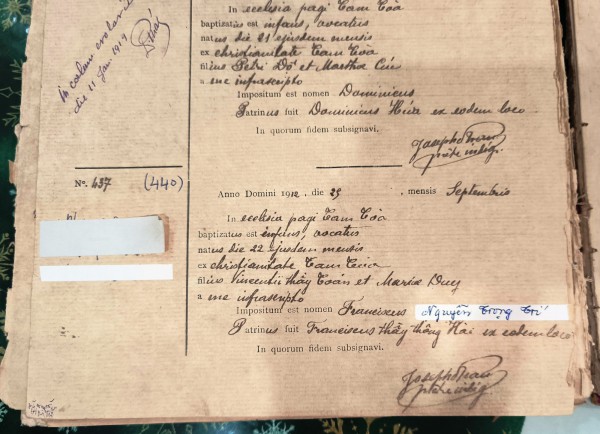 In ecclesia pagi Tam Tòa
baptizatus est infans, vocatus
natus die 21 ejusdem mensis
ex christianitate Tam Tòa
filius Petri Dờ et Martha Cúc
a me infrascripto
Impositum est nomen Dominicus
Patrinus fuit Dominicus Hứa ex eodem loco
In quorum fidem subsignavi.
In coelum evolavit
die 11 Jan 1919
Joseph Tran
No. 437 (440)
Anno Domini 1912, die 25, mensis Septembris
In ecclesia pagi Tam Tòa
baptizatus est infans, vocatus
natus die 22 ejusdem mensis
ex christianitate Tam Tòa
filius Vincentii thầy Toản et Maria Duy
a me infrascripto
Impositum est nomen Franciscus Nguyễn Trọng Trí
Patrinus fuit Franciscus thầy thông Hài ex eodem loco
In quorum fidem subsignavi.
Joseph Tran